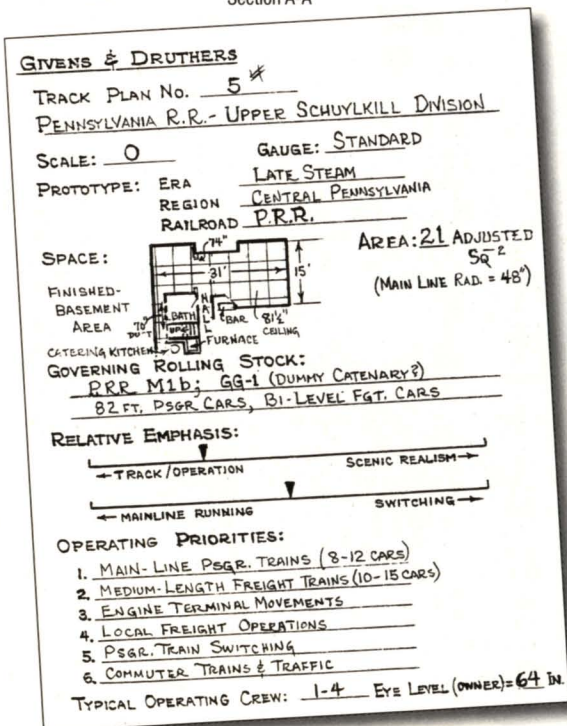 Section A-A
GIVENS & DRUTHERS
TRACK PLAN NO. 5#
PENNSYLVANIA R.R. - UPPER SCHUYLKILL DIVISION
SCALE: O GAUGE: STANDARD
PROTOTYPE: ERA LATE STEAM
REGION CENTRAL PENNSYLVANIA
RAILROAD P.R.R.
SPACE:
FINISHED-
BASEMENT
AREA
74"
31'
15'
BATH
HALL
UP
BAR
81½"
CEILING
70"
DUCT
FURNACE
CATERING KITCHEN
AREA: 21 ADJUSTED
SQ-2
(MAIN LINE RAD. = 48")
GOVERNING ROLLING STOCK:
PRR M1b; GG-1 (DUMMY CATENARY?)
82 FT. PSGR CARS, BI-LEVEL FGT. CARS
RELATIVE EMPHASIS:
←TRACK/OPERATION SCENIC REALISM→
←MAINLINE RUNNING SWITCHING→
OPERATING PRIORITIES:
1. MAIN-LINE PSGR. TRAINS (8-12 CARS)
2. MEDIUM-LENGTH FREIGHT TRAINS (10-15 CARS)
3. ENGINE TERMINAL MOVEMENTS
4. LOCAL FREIGHT OPERATIONS
5. PSGR. TRAIN SWITCHING
6. COMMUTER TRAINS & TRAFFIC
TYPICAL OPERATING CREW: 1-4 EYE LEVEL (OWNER)= 64 IN.